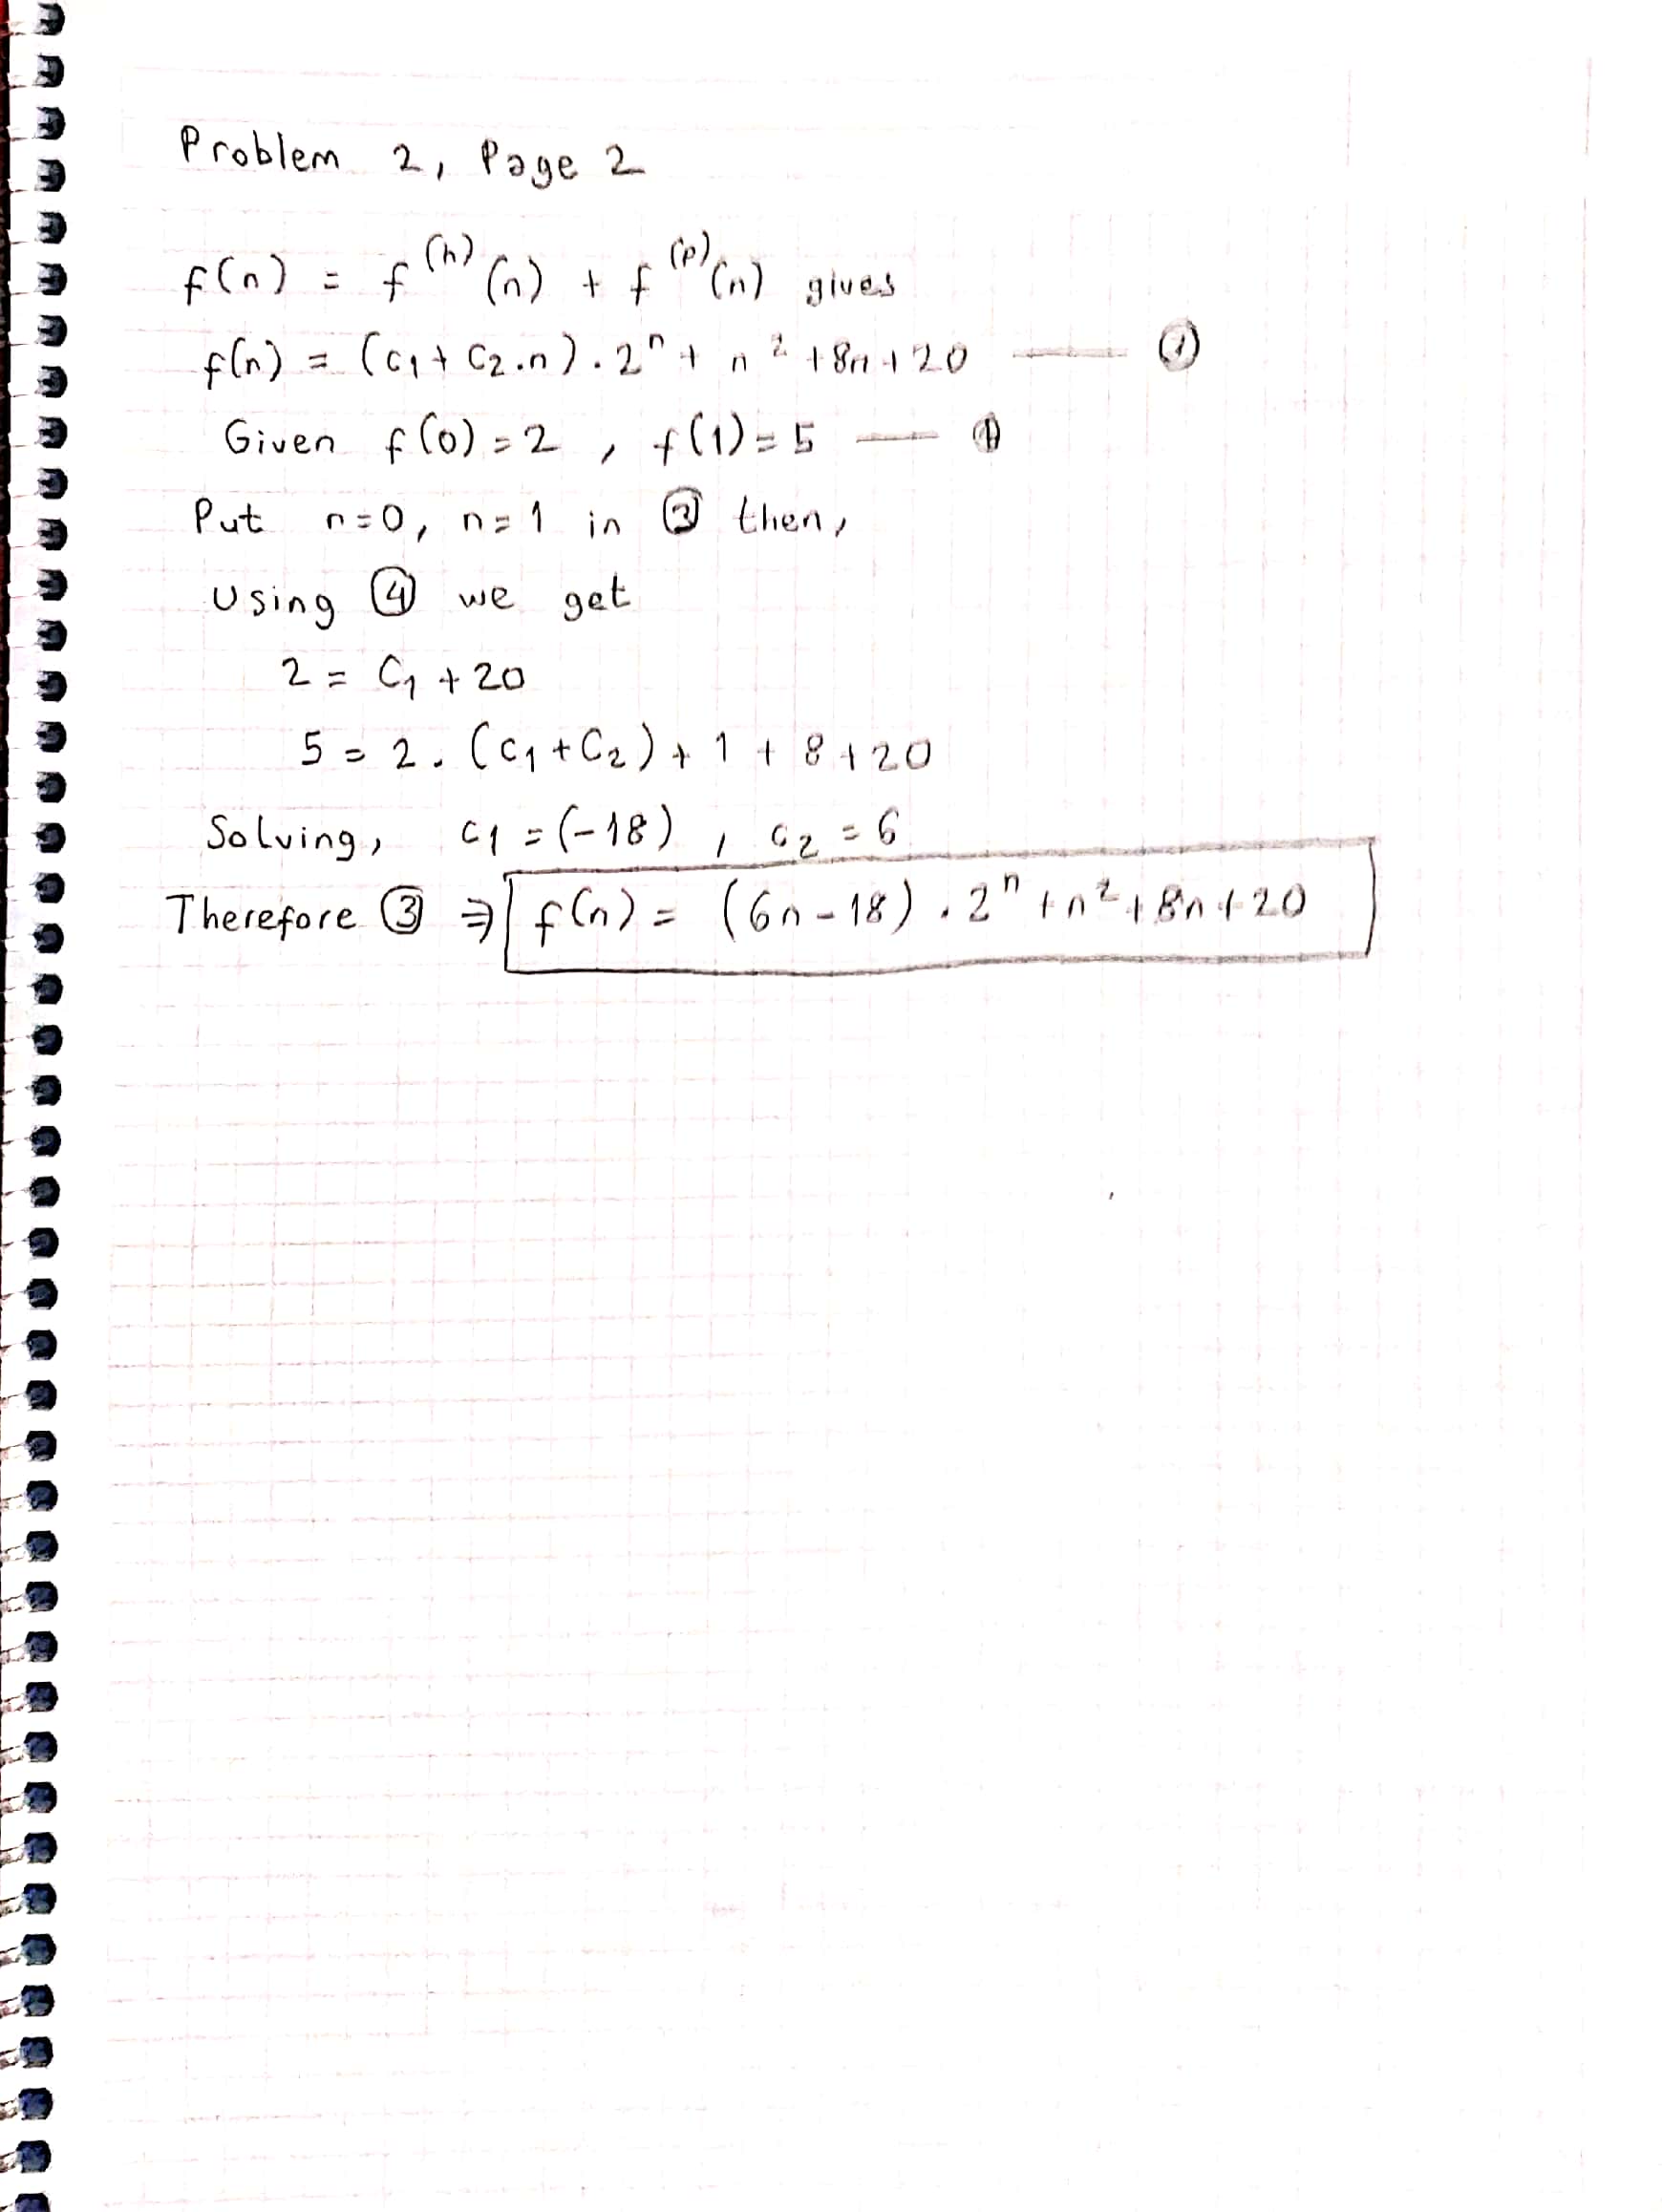 Problem 2, Page 2
f(n) = f^(h)(n) + f^(p)(n) gives
f(n) = (c₁ + c₂.n) . 2ⁿ + n² + 8n + 20 —— ③
Given f(0) = 2 , f(1) = 5 —— ④
Put n=0, n=1 in ③ then,
Using ④ we get
2 = C₁ + 20
5 = 2 . (C₁ + C₂) + 1 + 8 + 20
Solving, c₁ = (-18) , c₂ = 6
Therefore ③ ⇒ f(n) = (6n - 18) . 2ⁿ + n² + 8n + 20